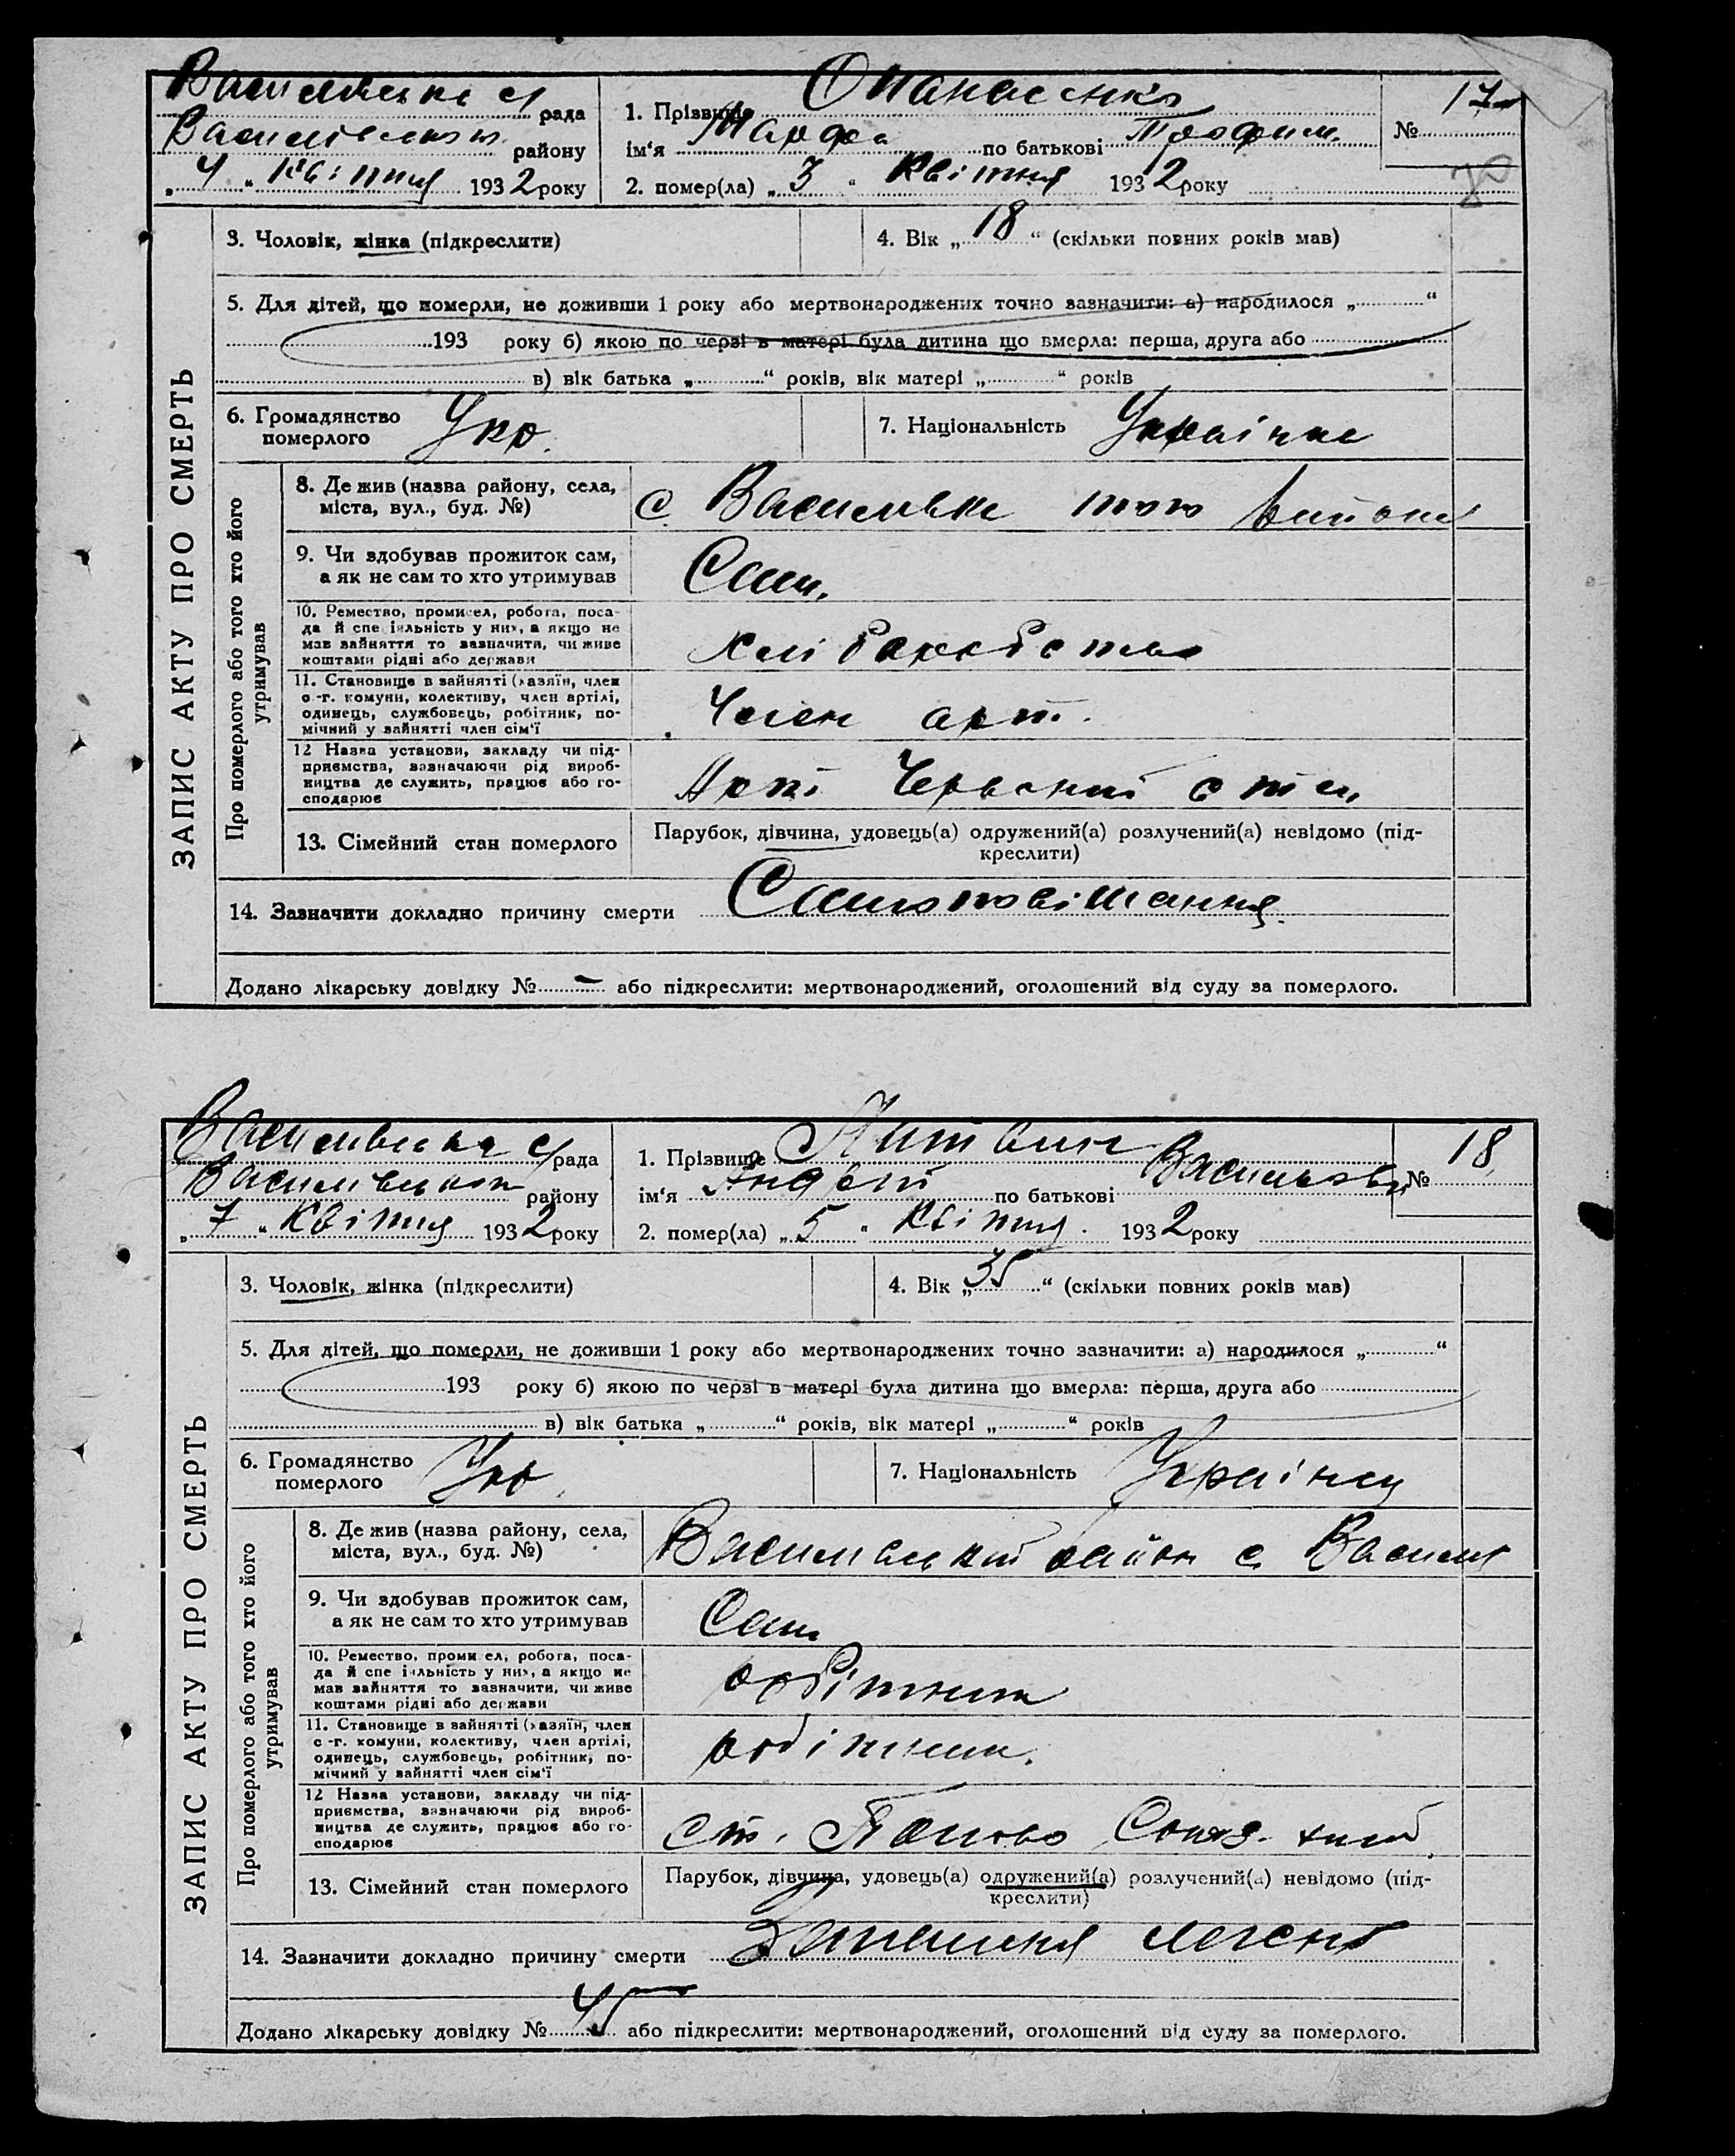 Василівська с/рада
Василівськ. району
„ 4 “ Квітня 1932 року
1. Прізвище Опанасенко
ім‘я Марфа по батькові Трофим.
2. помер(ла) „ 3 “ Квітня 1932 року
№ 17
ЗАПИС АКТУ ПРО СМЕРТЬ
3. Чоловік, жінка (підкреслити)
4. Вік „ 18 “ (скільки повних років мав)
5. Для дітей, що померли, не доживши 1 року або мертвонароджених точно зазначити: а) народилося „ “
193 року б) якою по черзі в матері була дитина що вмерла: перша, друга або
в) вік батька „ “ років, вік матері „ “ років
6. Громадянство
померлого
Укр.
7. Національність Українка
Про померлого або того хто його
утримував
8. Де жив (назва району, села,
міста, вул., буд. №)
с. Василівка того району
9. Чи здобував прожиток сам,
а як не сам то хто утримував
Сам.
10. Ремество, промисел, робота, поса-
да й спеціяльність у них, а якщо не
мав зайняття то зазначити, чи живе
коштами рідні або держави
хліборобство
11. Становище в зайнятті (хазяїн, член
с.-г. комуни, колективу, член артілі,
одинець, службовець, робітник, по-
мічний у зайнятті член сім‘ї
Член арт.
12 Назва установи, закладу чи під-
приємства, зазначаючи рід вироб-
ництва де служить, працює або го-
сподарює
Арт. Червоний степ
13. Сімейний стан померлого
Парубок, дівчина, удовець(а) одружений(а) розлучений(а) невідомо (під-
креслити)
14. Зазначити докладно причину смерти Самоповішання.
Додано лікарську довідку № – або підкреслити: мертвонароджений, оголошений від суду за померлого.
Василівська с/рада
Василівськ району
„ 7 “ Квітня 1932 року
1. Прізвище Литвин
ім‘я Андрій по батькові
2. помер(ла) „ 5 “ Квітня 1932 року
№ 18
ЗАПИС АКТУ ПРО СМЕРТЬ
3. Чоловік, жінка (підкреслити)
4. Вік „ 35 “ (скільки повних років мав)
5. Для дітей, що померли, не доживши 1 року або мертвонароджених точно зазначити: а) народилося „ “
193 року б) якою по черзі в матері була дитина що вмерла: перша, друга або
в) вік батька „ “ років, вік матері „ “ років
6. Громадянство
померлого
Укр.
7. Національність Українец
Про померлого або того хто його
утримував
8. Де жив (назва району, села,
міста, вул., буд. №)
Василівський район с.
9. Чи здобував прожиток сам,
а як не сам то хто утримував
Сам
10. Ремество, промисел, робота, поса-
да й спеціяльність у них, а якщо не
мав зайняття то зазначити, чи живе
коштами рідні або держави
робітник
11. Становище в зайнятті (хазяїн, член
с.-г. комуни, колективу, член артілі,
одинець, службовець, робітник, по-
мічний у зайнятті член сім‘ї
робітник.
12 Назва установи, закладу чи під-
приємства, зазначаючи рід вироб-
ництва де служить, працює або го-
сподарює
ст. Попово
13. Сімейний стан померлого
Парубок, дівчина, удовець(а) одружений(а) розлучений(а) невідомо (під-
креслити)
14. Зазначити докладно причину смерти Запалення легенів
Додано лікарську довідку № 45 або підкреслити: мертвонароджений, оголошений від суду за померлого.